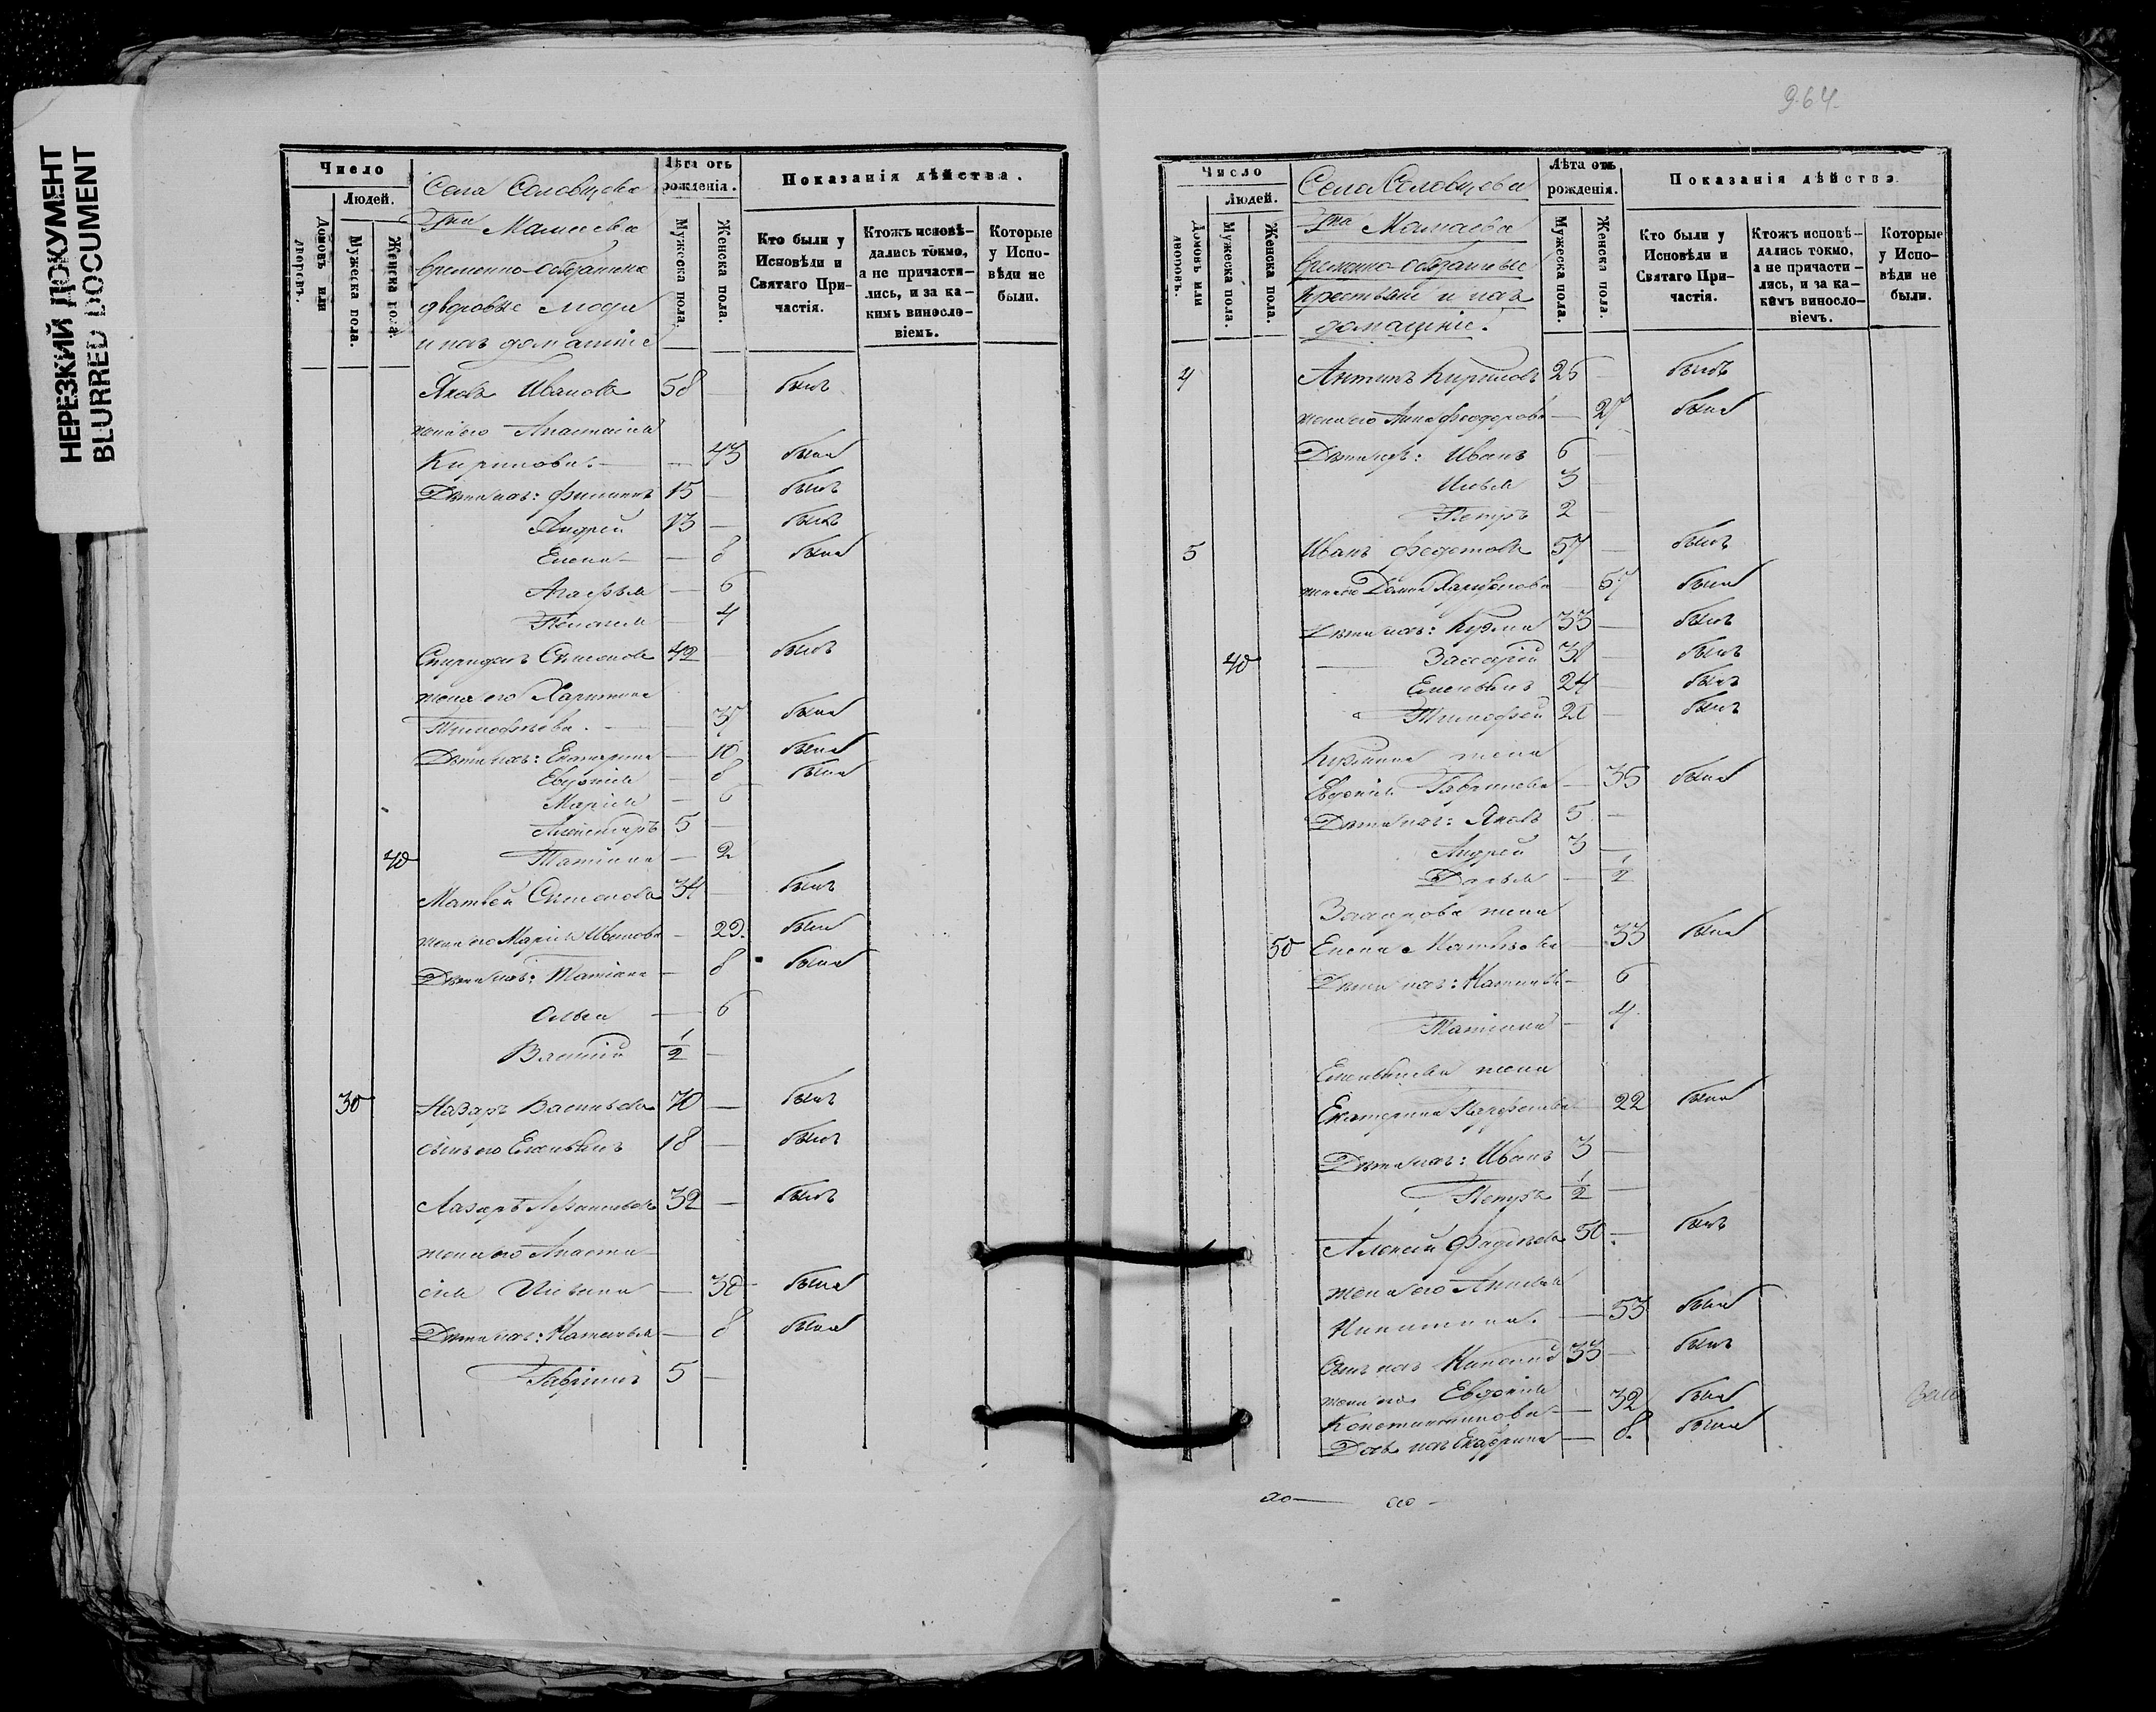 НЕРЕЗКИЙ ДОКУМЕНТ
BLURRED DOCUMENT
Число
Людей.
Домовъ или дворовъ.
Мужеска пола.
Женска пола.
Села Соловцова
Гна Мамаева
временно-обязанные
дворовые люди
и ихъ домашніе
Лѣта отъ рожденія.
Мужеска пола.
Женска пола.
Показанія дѣйства.
Кто были у Исповѣди и Святаго При-частія.
Ктожъ исповѣ-дались токмо, а не причасти-лись, и за ка-кимъ винosло-віемъ.
Которые у Испо-вѣди не были.
Яковъ Ивановъ 58 — былъ
жена его Анастасія
Кирилова — — 43 была
Дѣти ихъ: Филиппъ 15 — былъ
Андрей 13 — былъ
Елена — 8 была
Агафья — 6
Пелагея — 4
Спиридонъ Симоновъ 42 — былъ
жена его Харитина
Тимофѣева — — 37 была
Дѣти ихъ: Екатерина — 10 была
Евдокія — 8 была
Марія — 6
Александръ 5 —
40 Татіана — 2
Матвей Симоновъ 34 — былъ
жена его Марія Иванова — 29 была
Дѣти ихъ: Татіана — 8 была
Ольга — 6
Василій 1/2 —
30 Назаръ Васильевъ 70 — былъ
сынъ его Емельянъ 18 — былъ
Лазарь 32 — былъ
жена его Анаста-
сія Ильина — 30 была
Дѣти ихъ: Наталья — 8 была
Гавріилъ 5 —
964
Число
Людей.
Домовъ или дворовъ.
Мужеска пола.
Женска пола.
Села Соловцова
Гна Мамаева
временно-обязанные
крестьяне и ихъ
домашніе.
Лѣта отъ рожденія.
Мужеска пола.
Женска пола.
Показанія дѣйства
Кто были у Исповѣди и Святаго При-частія.
Ктожъ исповѣ-дались токмо, а не причасти-лись, и за ка-кимъ винosло-віемъ.
Которые у Испо-вѣди не были.
4 Антипъ Кириловъ 26 — былъ
жена его Анна Феодорова — 27 была
Дѣти ихъ: Иванъ 6 —
Илья 3 —
Петръ 2 —
5 Иванъ Федотовъ 57 — былъ
жена его Домна — 57 была
Дѣти ихъ: Кузма 33 — былъ
40 Захарій 31 — былъ
Емельянъ 24 — былъ
Тимофей 20 — былъ
Кузмина жена
Евдокія Гаврилова — 36 была
Дѣти ихъ: Яковъ 5 —
Андрей 3 —
Дарья — 1/2
Захарова жена
50 Елена Матвѣева — 33 была
Дѣти ихъ: Наталья — 6
Татіана — 4
Емельянова жена
Екатерина — 22 была
Дѣти ихъ: Иванъ 3 —
Петръ 1/2 —
Алексей Фадѣевъ 50 — былъ
жена его
Никитина — 53 была
Сынъ ихъ 33 — былъ
жена его Евдокія
Константинова — 32 была
Дочь ихъ Екатерина — 8 была